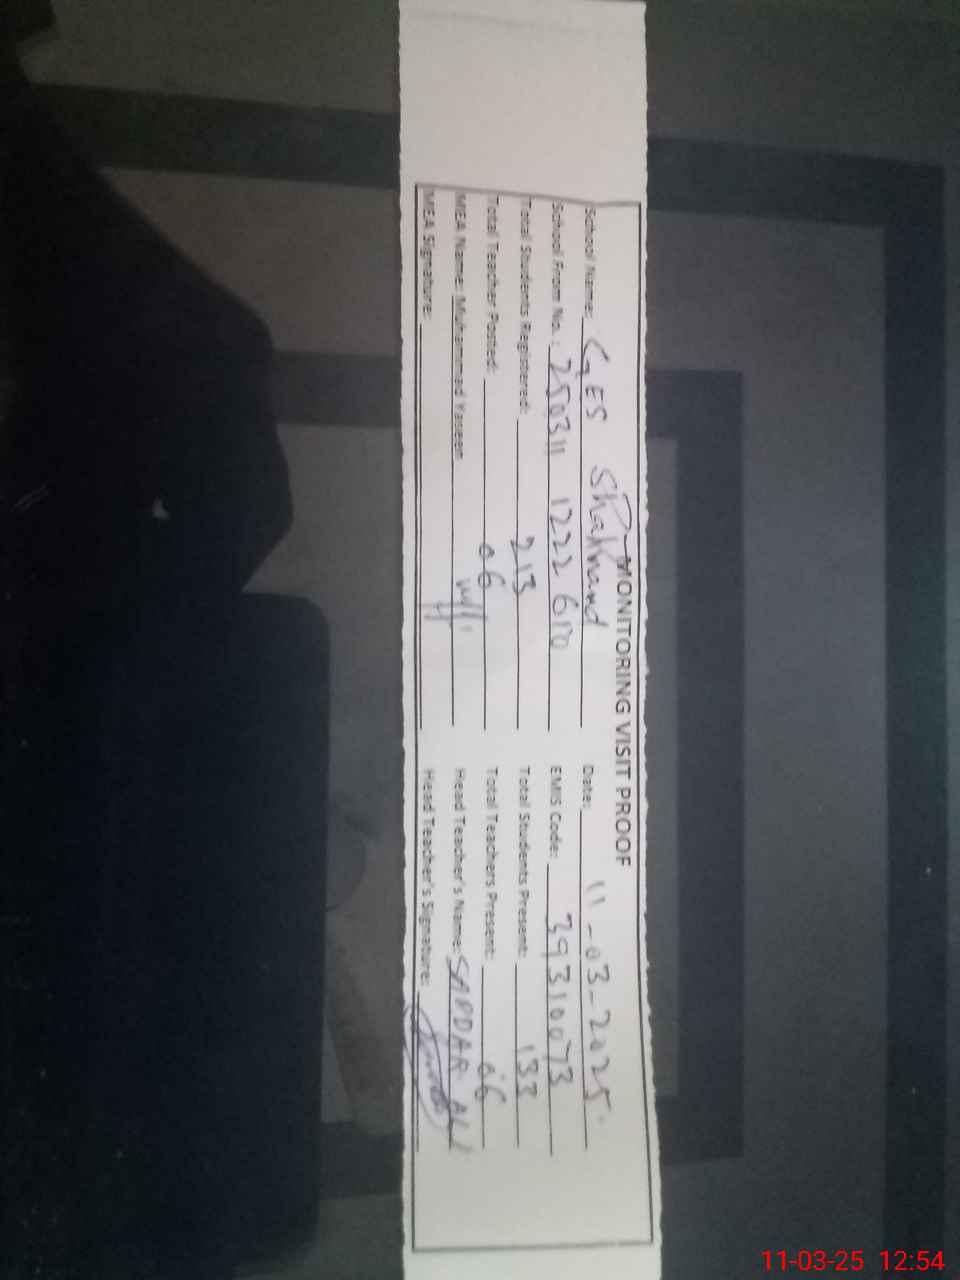 MONITORING VISIT PROOF
School Name: GES Shahnand Date: 11-03-2025
School From No.: 250311 1222 610 EMIS Code: 39310073
Total Students Registered: 213 Total Students Present: 133
Total Teacher Posted: 06 Total Teachers Present: 06
MEA Name: Muhammad Yaseen Head Teacher's Name: SAFDAR ALI
MEA Signature: Head Teacher's Signature:
11-03-25 12:54